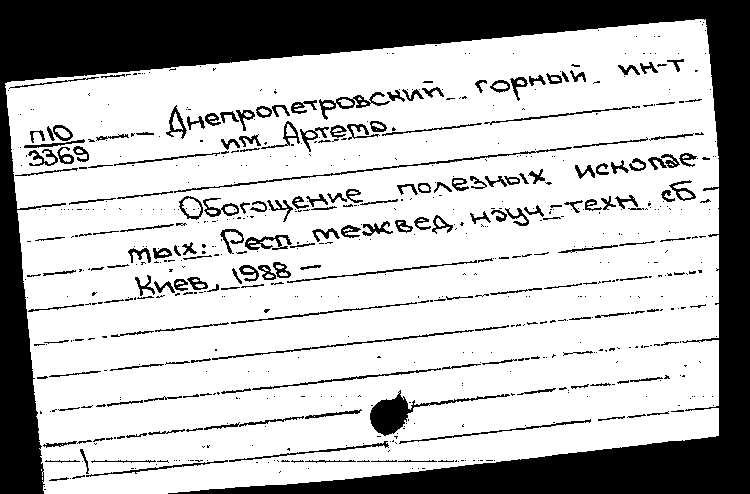 п10
3369
Днепропетровский горный ин-т
им. Артема.
Обогащение полезных ископае-
мых: Респ. межвед. науч.-техн. сб.-
Киев, 1988 —